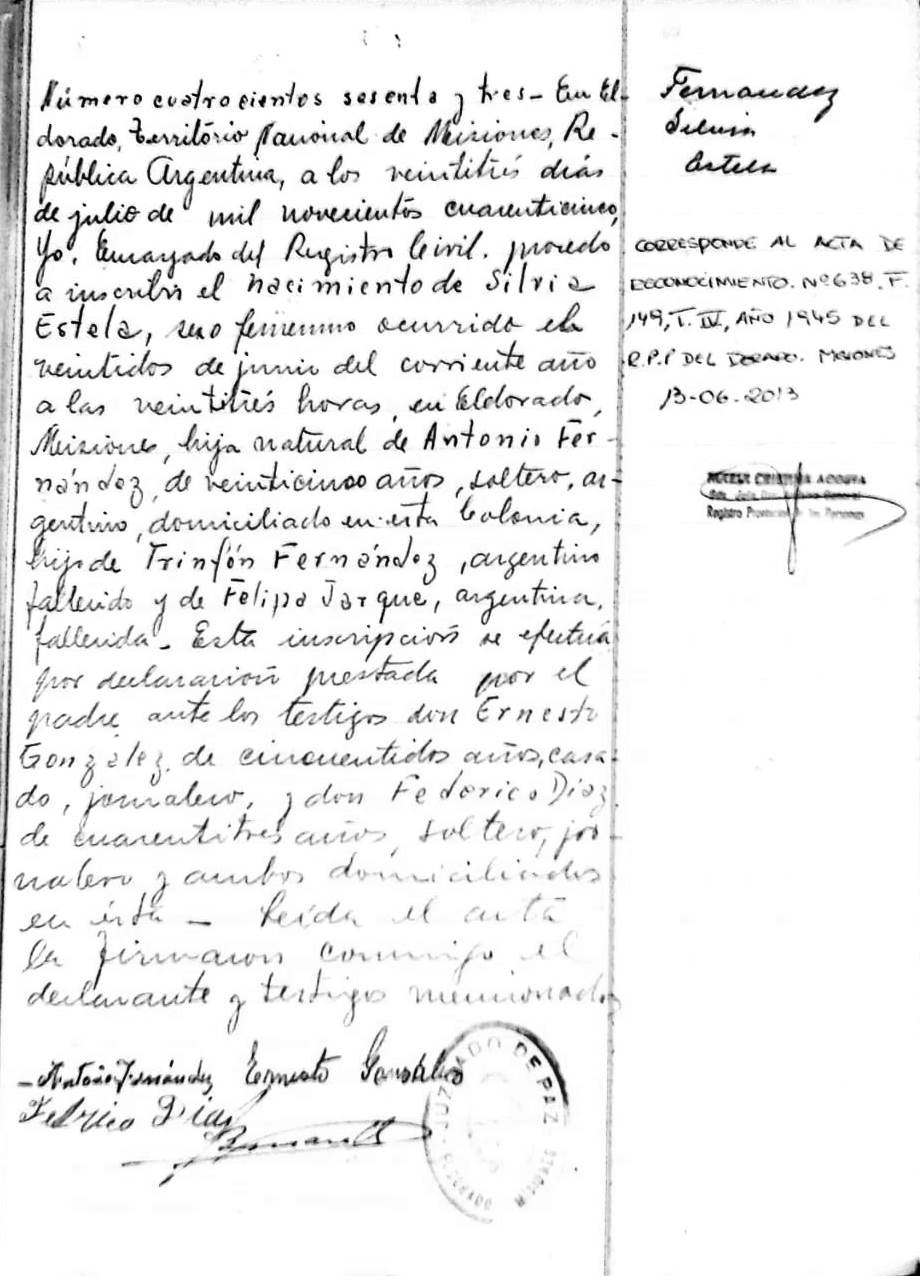 Número cuatrocientos sesenta y tres – En El-
dorado, Território Nacional de Misiones, Re-
pública Argentina, a los veintitrés dias
de julio de mil novecientos cuarenticinco,
Yo, Encargado del Registro Civil. procedo
a inscribir el nacimiento de Silvia
Estela, sexo femenino ocurrido el
veintidos de junio del corriente año
a las veintitrés horas, en Eldorado,
Misiones, hija natural de Antonio Fer-
nández, de veinticinco años, soltero, ar-
gentino, domiciliado en esta Colonia,
hijo de Trinfón Fernández, argentino
fallecido y de Felipa Jarque, argentina,
fallecida – Esta inscripción se efectúa
por declaración prestada por el
padre ante los testigos don Ernesto
González, de cincuentidos años, casa-
do, jornalero, y don Federico Díaz
de cuarentitres años, soltero, jor-
nalero y ambos domiciliados
en ésta – Leída el acta
la firmaron conmigo el
declarante y testigos mencionados
– Antonio Fernández Ernesto González
Fedrico Diaz
JUZGADO DE PAZ
ELDORADO
MISIONES
Fernandez
Silvia
Estela
CORRESPONDE AL ACTA DE
RECONOCIMIENTO. Nº 638. F.
149, T. IV, AÑO 1945 DEL
R.P.P DEL DORADO. MISIONES
13-06-2013
CRISTINA ACOSTA
Registro Provincial de las Personas